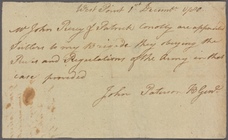 West Point 1st Decemr 1780
Mr John Percy & Patrick Conoly are appointed
Sutlers to my Brigade they obeying the
Rules and Regulations of the Army in that
case provided
John Paterson B Genl